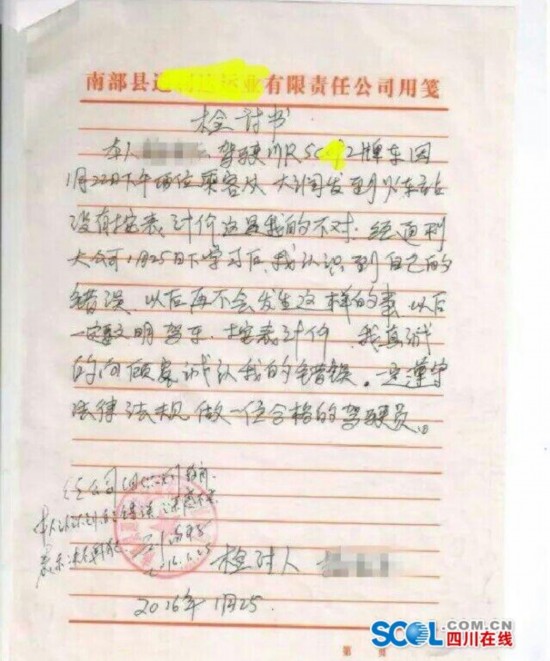 南部县 运业有限责任公司用笺
检讨书
本人 驾驶川R5 2牌车因
1月22日下午 位乘客从大润发到火车站
没有按表计价这是我的不对.经通利
大公司1月25日下学习后,我认识到自己的
错误.以后再不会发生这样的事.以后
一定要文明驾车.按表计价.我真诚
的向顾客诚认我的错误.一定遵守
法律法规.做一位合格的驾驶员。
经公司 教育,
本人认识到 错误,
表示
检讨人
2016年1月25.
第 页
SCOL.COM.CN
四川在线